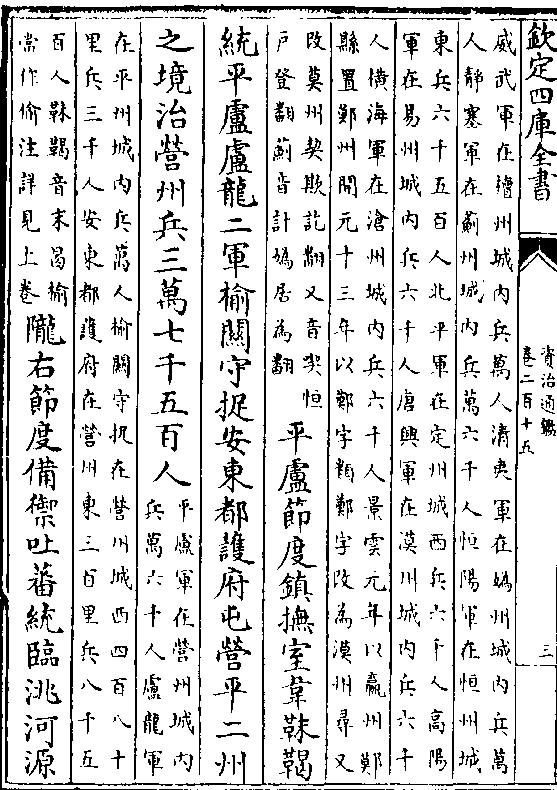 欽定四庫全書
資治通鑑
卷二百十五
三
威武軍在檀州城内兵萬人清夷軍在媯州城内兵萬
人靜塞軍在薊州城内兵萬六千人恒陽軍在恒州城
東兵六千五百人北平軍在定州城西兵六千人高陽
軍在易州城内兵六千人唐興軍在漠州城内兵六千
人横海軍在滄州城内兵六千人景雲元年以瀛州鄚
縣置鄚州開元十三年以鄚字類鄭字改為漠州尋又
改莫州契欺訖翻又音喫恒
戸登翻薊音計媯居為翻
平盧節度鎮撫室韋靺鞨
統平盧盧龍二軍榆關守捉安東都護府屯營平二州
之境治營州兵三萬七千五百人
平盧軍在營州城内
兵萬六千人盧龍軍
在平州城内兵萬人榆關守捉在營州城西四百八十
里兵三千人安東都護府在營州東三百里兵八千五
百人靺鞨音末曷榆
當作偷注詳見上卷
隴右節度備禦吐蕃統臨洮河源